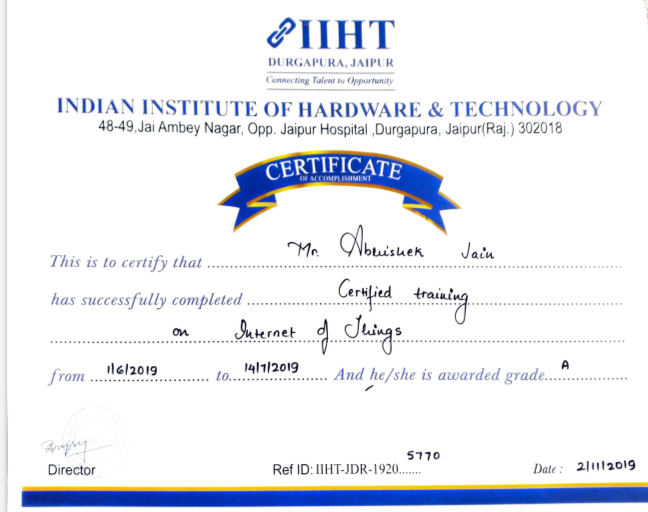 IIHT
DURGAPURA, JAIPUR
Connecting Talent to Opportunity
INDIAN INSTITUTE OF HARDWARE & TECHNOLOGY
48-49,Jai Ambey Nagar, Opp. Jaipur Hospital ,Durgapura, Jaipur(Raj.) 302018
CERTIFICATE
OF ACCOMPLISHMENT
This is to certify that Mr. Abhishek Jain
has successfully completed Certified training
on Internet of Things
from 1/6/2019 to 14/7/2019 And he/she is awarded grade A
Director Ref ID: IIHT-JDR-1920 5770 Date : 2/11/2019